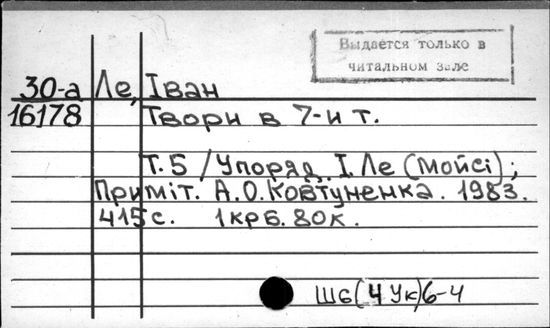 Выдается только в
читальном зале
30-а Ле, Іван
16178 Твори в 7-и т.
Т.5 / Упоряд. І. Ле (Мойсі);
Приміт. А.О. Ковтуненка. 1983.
415 с. 1 крб. 80 к.
Ш6(4Ук)6-4